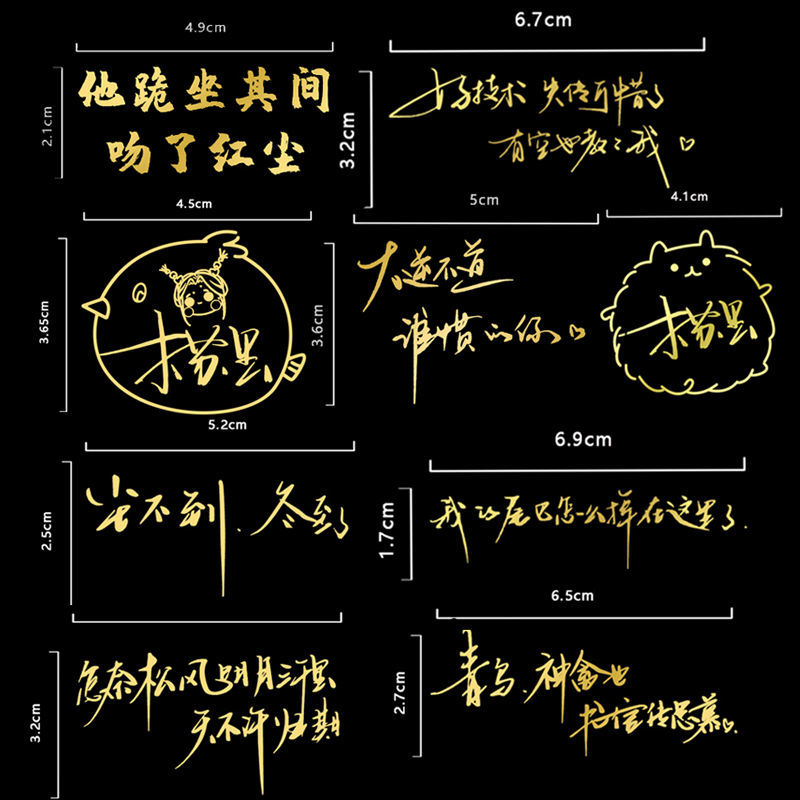 4.9cm
6.7cm
2.1cm
他跪坐其间
吻了红尘
3.2cm
好技术 失传可惜了
有空也教教我
4.5cm
5cm
4.1cm
3.65cm
木苏里
3.6cm
大逆不道
谁惯的你
木苏里
5.2cm
6.9cm
2.5cm
尘不到.冬至了
1.7cm
我的尾巴怎么掉在这里了.
6.5cm
3.2cm
怎奈松风明月三千里
天不许归期
2.7cm
青鸟.神禽也
书信传思慕